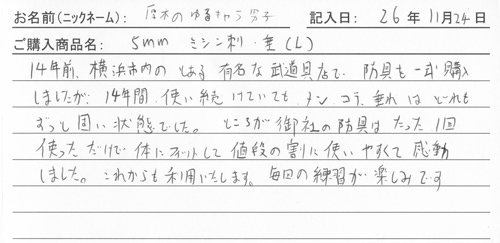 お名前(ニックネーム): 厚木のゆるキャラ男子 記入日: 26年11月24日
ご購入商品名: 5mm ミシン刺・垂(L)
14年前、横浜市内のとある有名な武道具店で、防具を一式購入
しましたが、14年間、使い続けていても、メン、コテ、垂れはどれも
ずっと固い状態でした。ところが御社の防具はたった1回
使っただけで体にフィットして値段の割に使いやすくて感動
しました。これからも利用いたします。毎回の練習が楽しみです